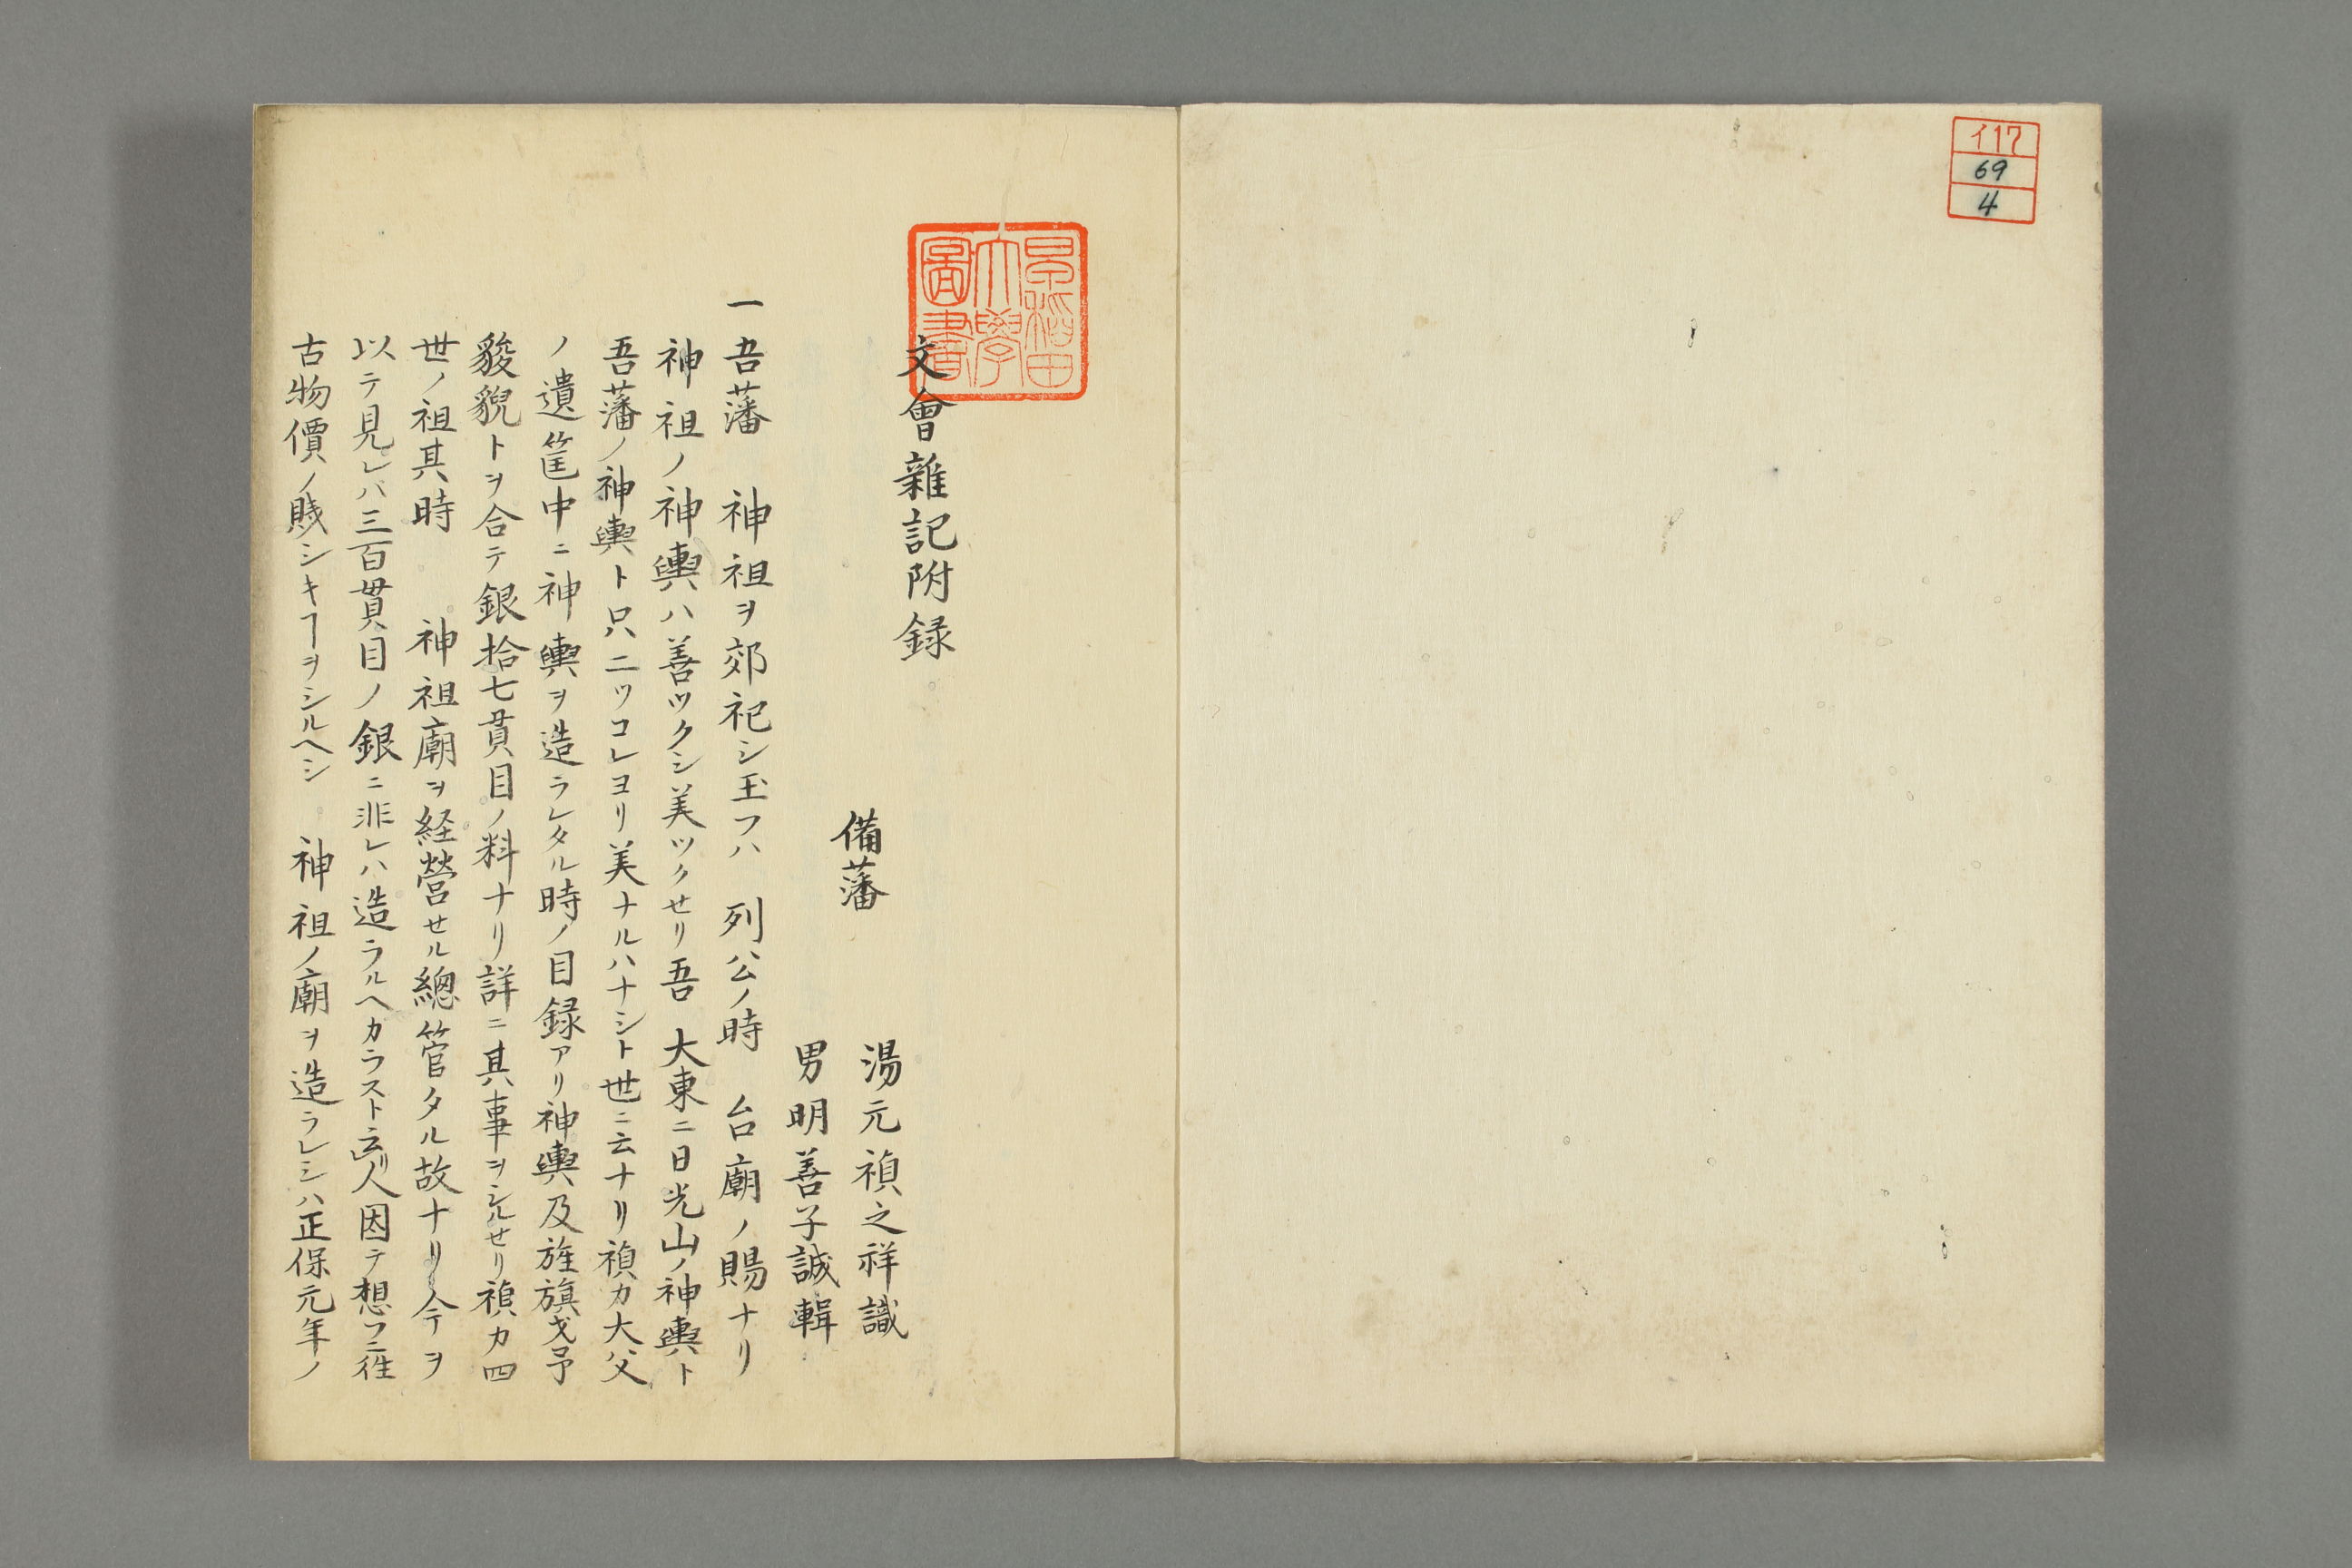 イ17
69
4
早稲田
大學
圖書
文會雜記附録
備藩
湯元禎之祥識
男明善子誠輯
一吾藩 神祖ヲ郊祀シ玉フハ 列公ノ時 台廟ノ賜ナリ
神祖ノ神輿ハ善ツクシ美ツクせリ吾 大東ニ日光山ノ神輿ト
吾藩ノ神輿ト只二ツコレヨリ美ナルハナシト世ニ云ナリ禎カ大父
ノ遺筐中ニ神輿ヲ造ラレタル時ノ目録アリ神輿及旌旗戈予
狻猊トヲ合テ銀拾七貫目ノ料ナリ詳ニ其事ヲシルせリ禎カ四
世ノ祖其時 神祖廟ヲ経營せル總管タル故ナリ今ヲ
以テ見レバ三百貫目ノ銀ニ非レハ造ラルヘカラスト云リ人因テ想フニ徃
古物價ノ賎シキヿヲシルヘシ 神祖ノ廟ヲ造ラレシハ正保元年ノ